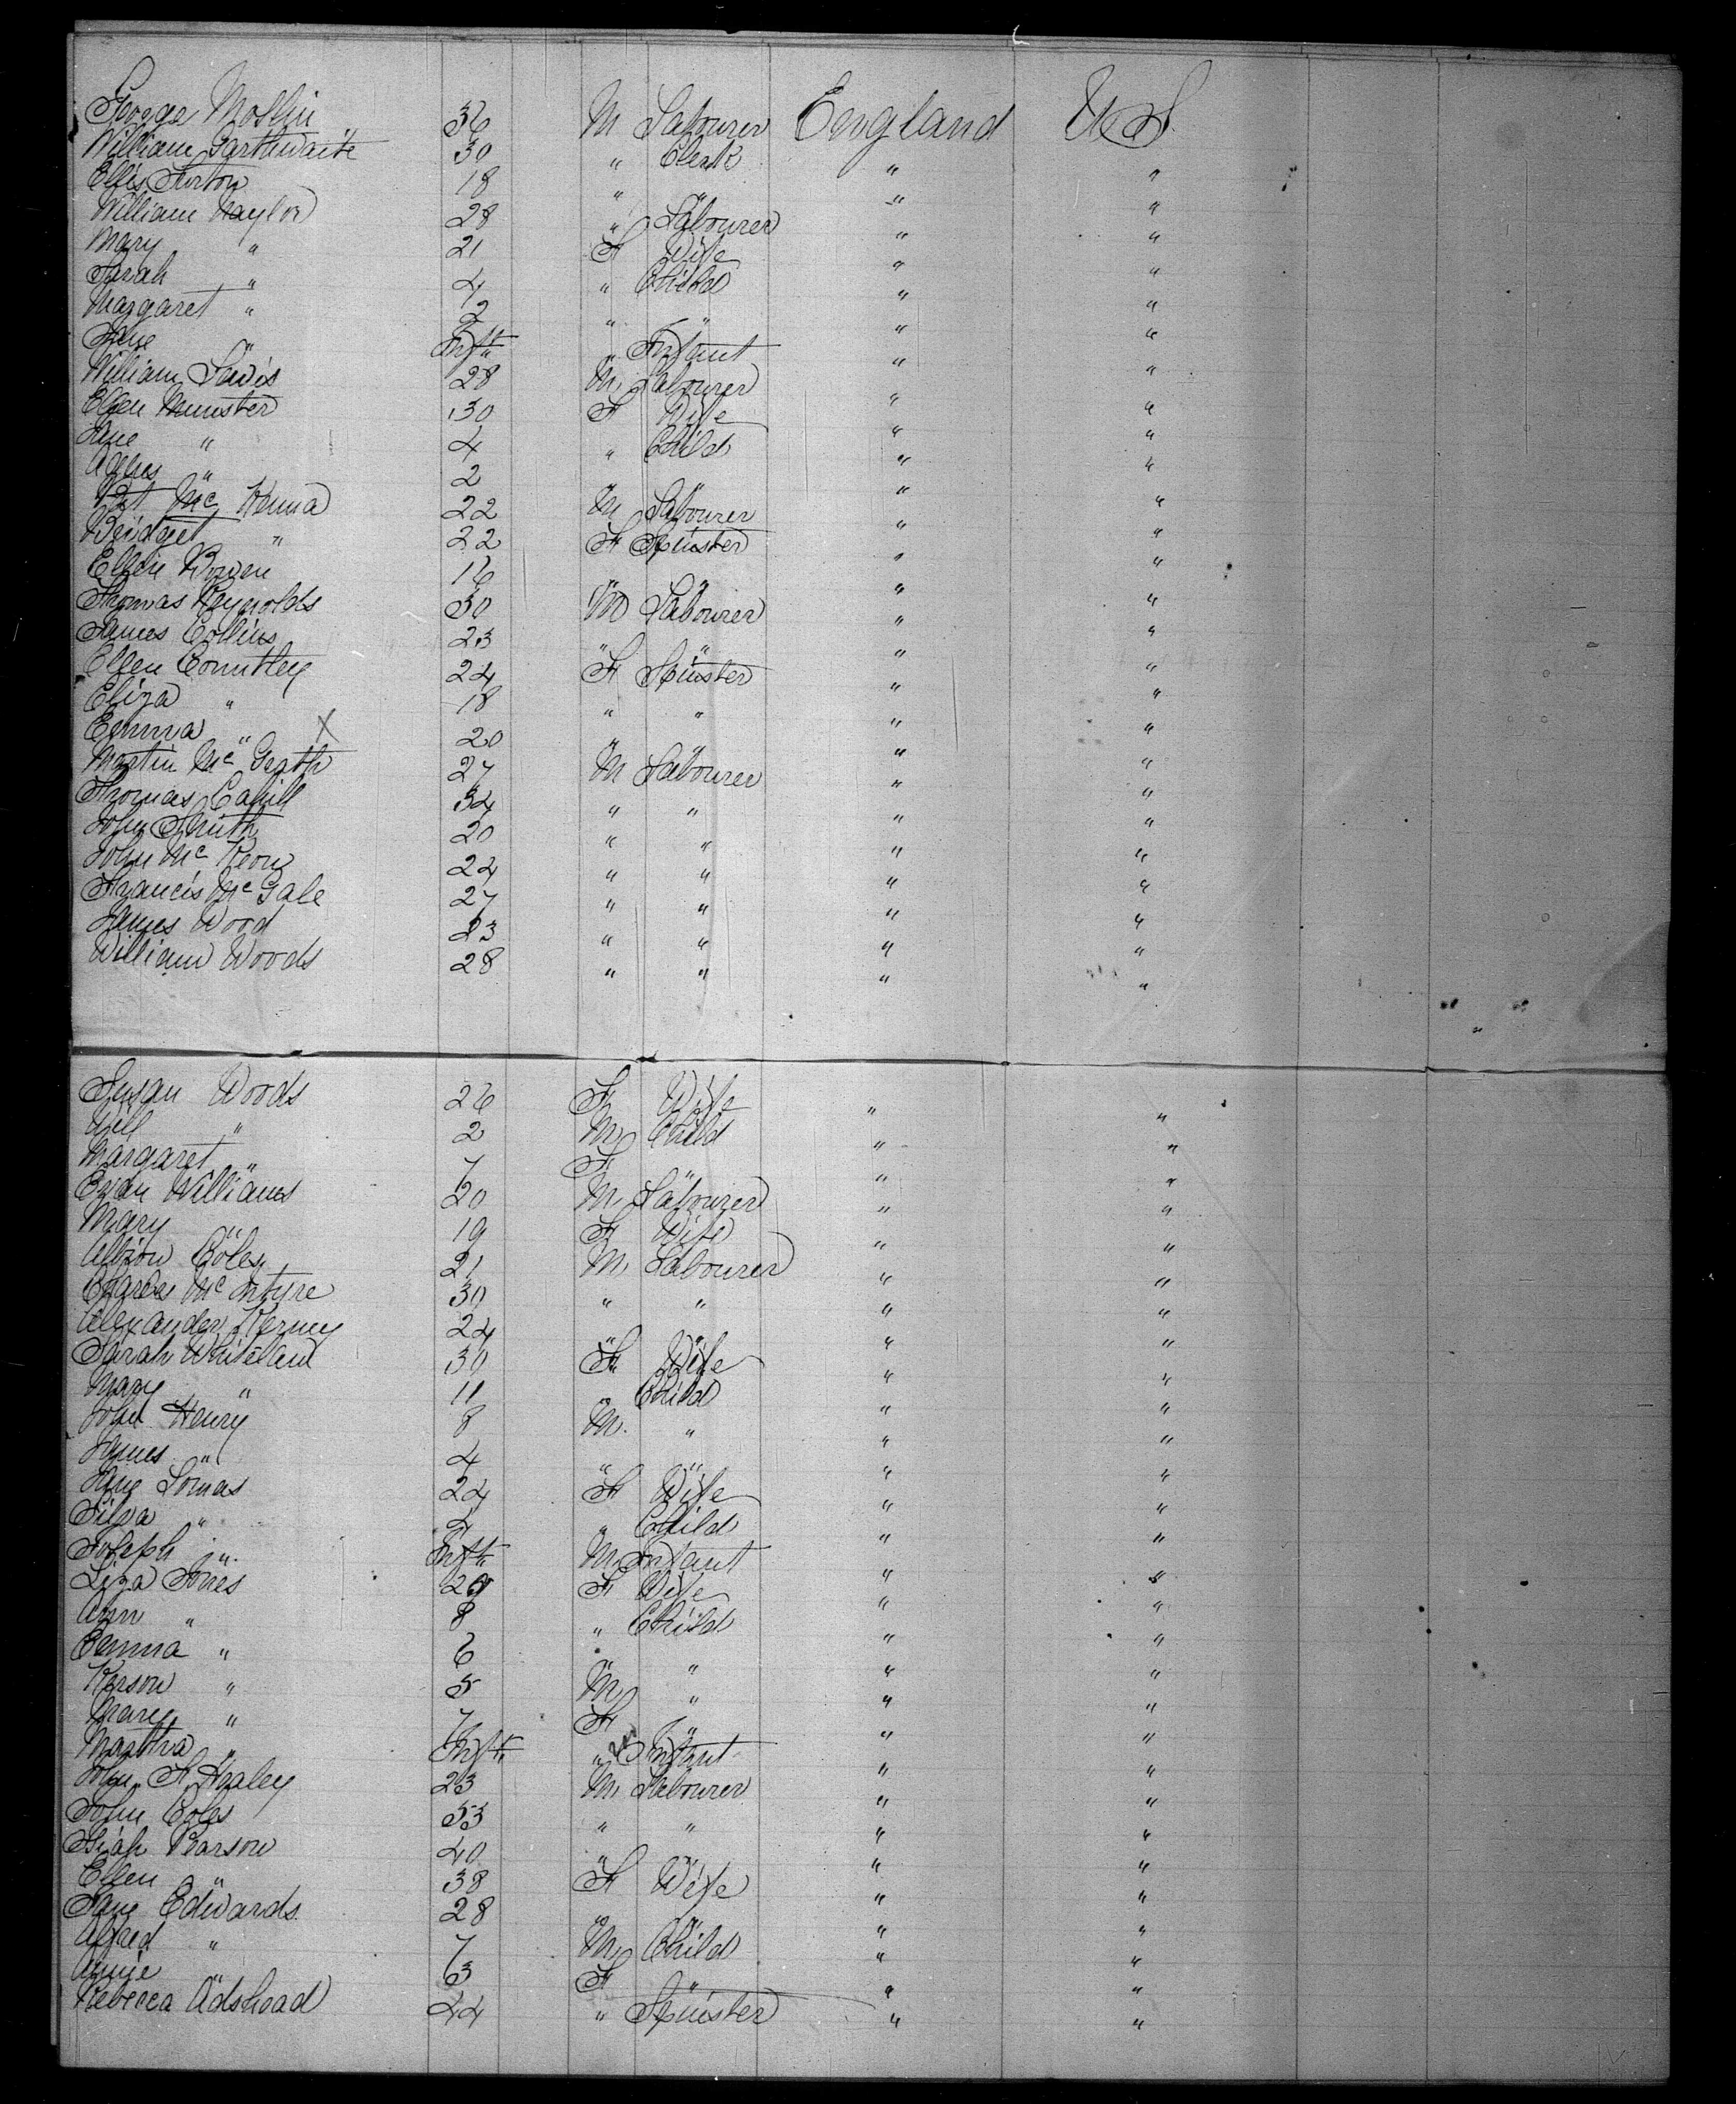 George Mossin 36 M Labourer England U.S.
William Garthwaite 30 " Clerk " "
Ellis Turton 18 " " " "
William Naylor 28 " Labourer " "
Mary " 21 F Wife " "
Sarah " 4 " Child " "
Margaret " 2 " " " "
Jane " Inft " Infant " "
William Lewis 28 M Labourer " "
Ellen Munster 30 F Wife " "
Jane " 4 " Child " "
Agnes " 2 " " " "
Pat McKenna 22 M Labourer " "
Bridget " 22 F Spinster " "
Ellen Bowen 16 " " " "
Thomas Reynolds 30 M Labourer " "
James Collins 23 " " " "
Ellen 24 F Spinster " "
Eliza " 18 " " " "
Emma " X 20 " " " "
Martin McGrath 27 M Labourer " "
Thomas Cahill 34 " " " "
John Smith 20 " " " "
John McKeon 24 " " " "
Francis McGale 27 " " " "
James Wood 23 " " " "
William Woods 28 " " " "
Susan Woods 26 F Wife " "
Will " 2 M Child " "
Margaret " 7 F " " "
Evan Williams 20 M Labourer " "
Mary " 19 F Wife " "
Albion Coles 21 M Labourer " "
Charles McIntyre 30 " " " "
Alexander 24 " " " "
Sarah 30 F Wife " "
Mary " 11 " Child " "
John Henry " 8 M. " " "
James " 4 " " " "
Jane Lomas 24 F Wife " "
" 2 " Child " "
Joseph " Inft M Infant " "
Liza Jones 29 F Wife " "
Ann " 8 " Child " "
Emma " 6 " " " "
" 5 M " " "
Mary " 7 F " " "
Martha " Inft " Infant " "
John F. Healey 23 M Labourer " "
John Coles 53 " " " "
Pearson 40 " " " "
Ellen " 38 F Wife " "
Jane Edwards 28 " " " "
Alfred " 7 M Child " "
Annie " 3 F " " "
Rebecca Adshead 44 " Spinster " "